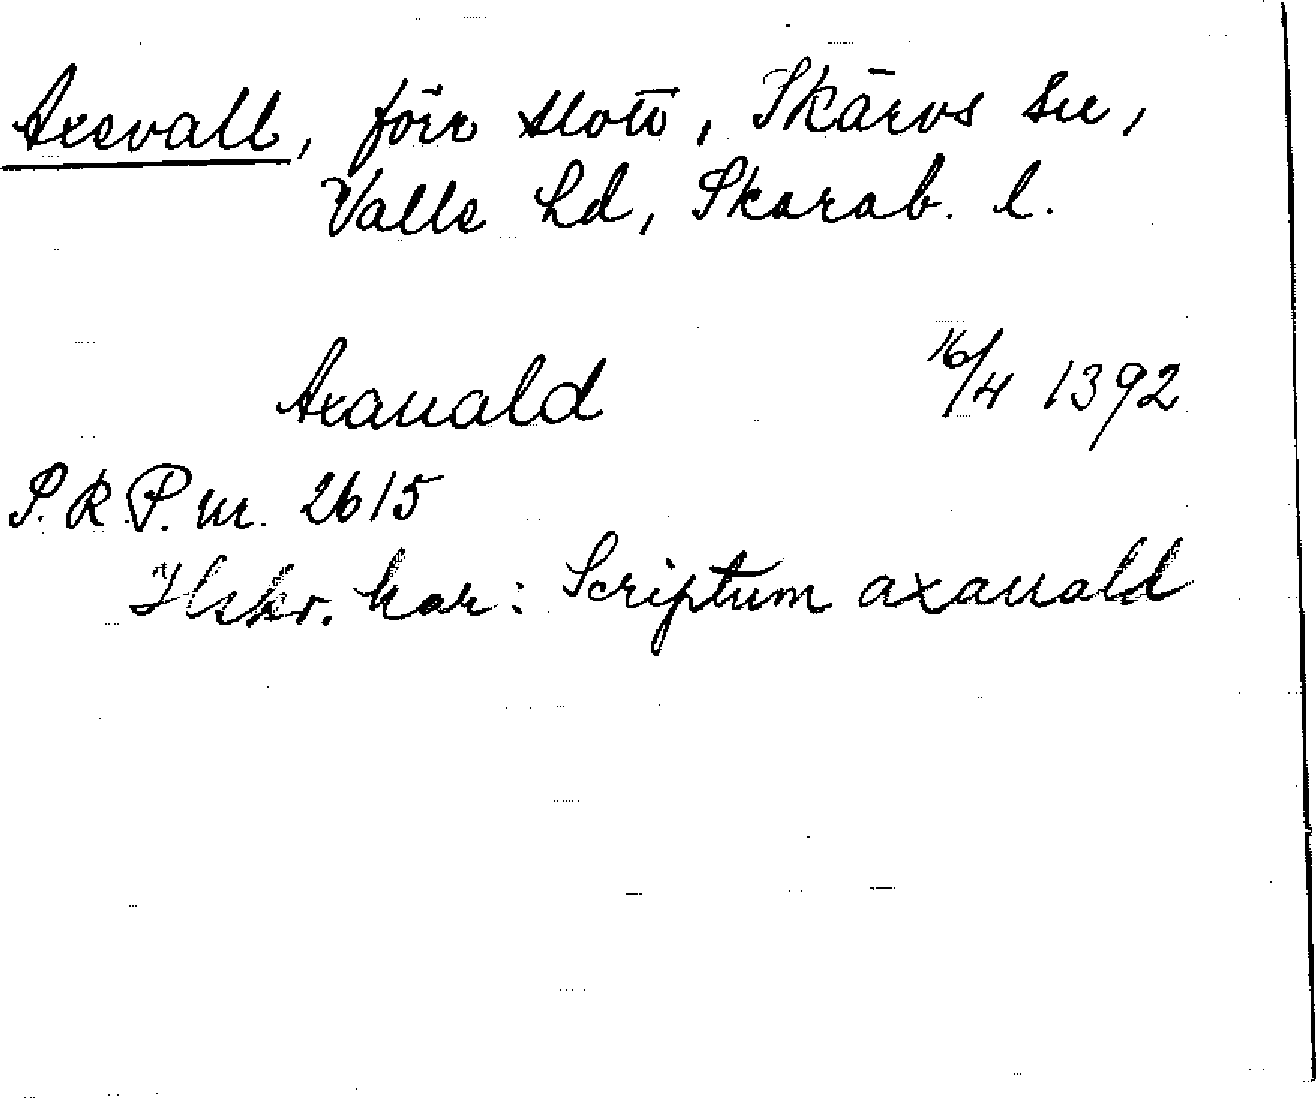 Axevall, förr slott, Skärvs sn,
Valle hd, Skarab. l.
Axauald 16/4 1392
P.R.P. nr. 2615
Hskr. har: Scriptum axauald